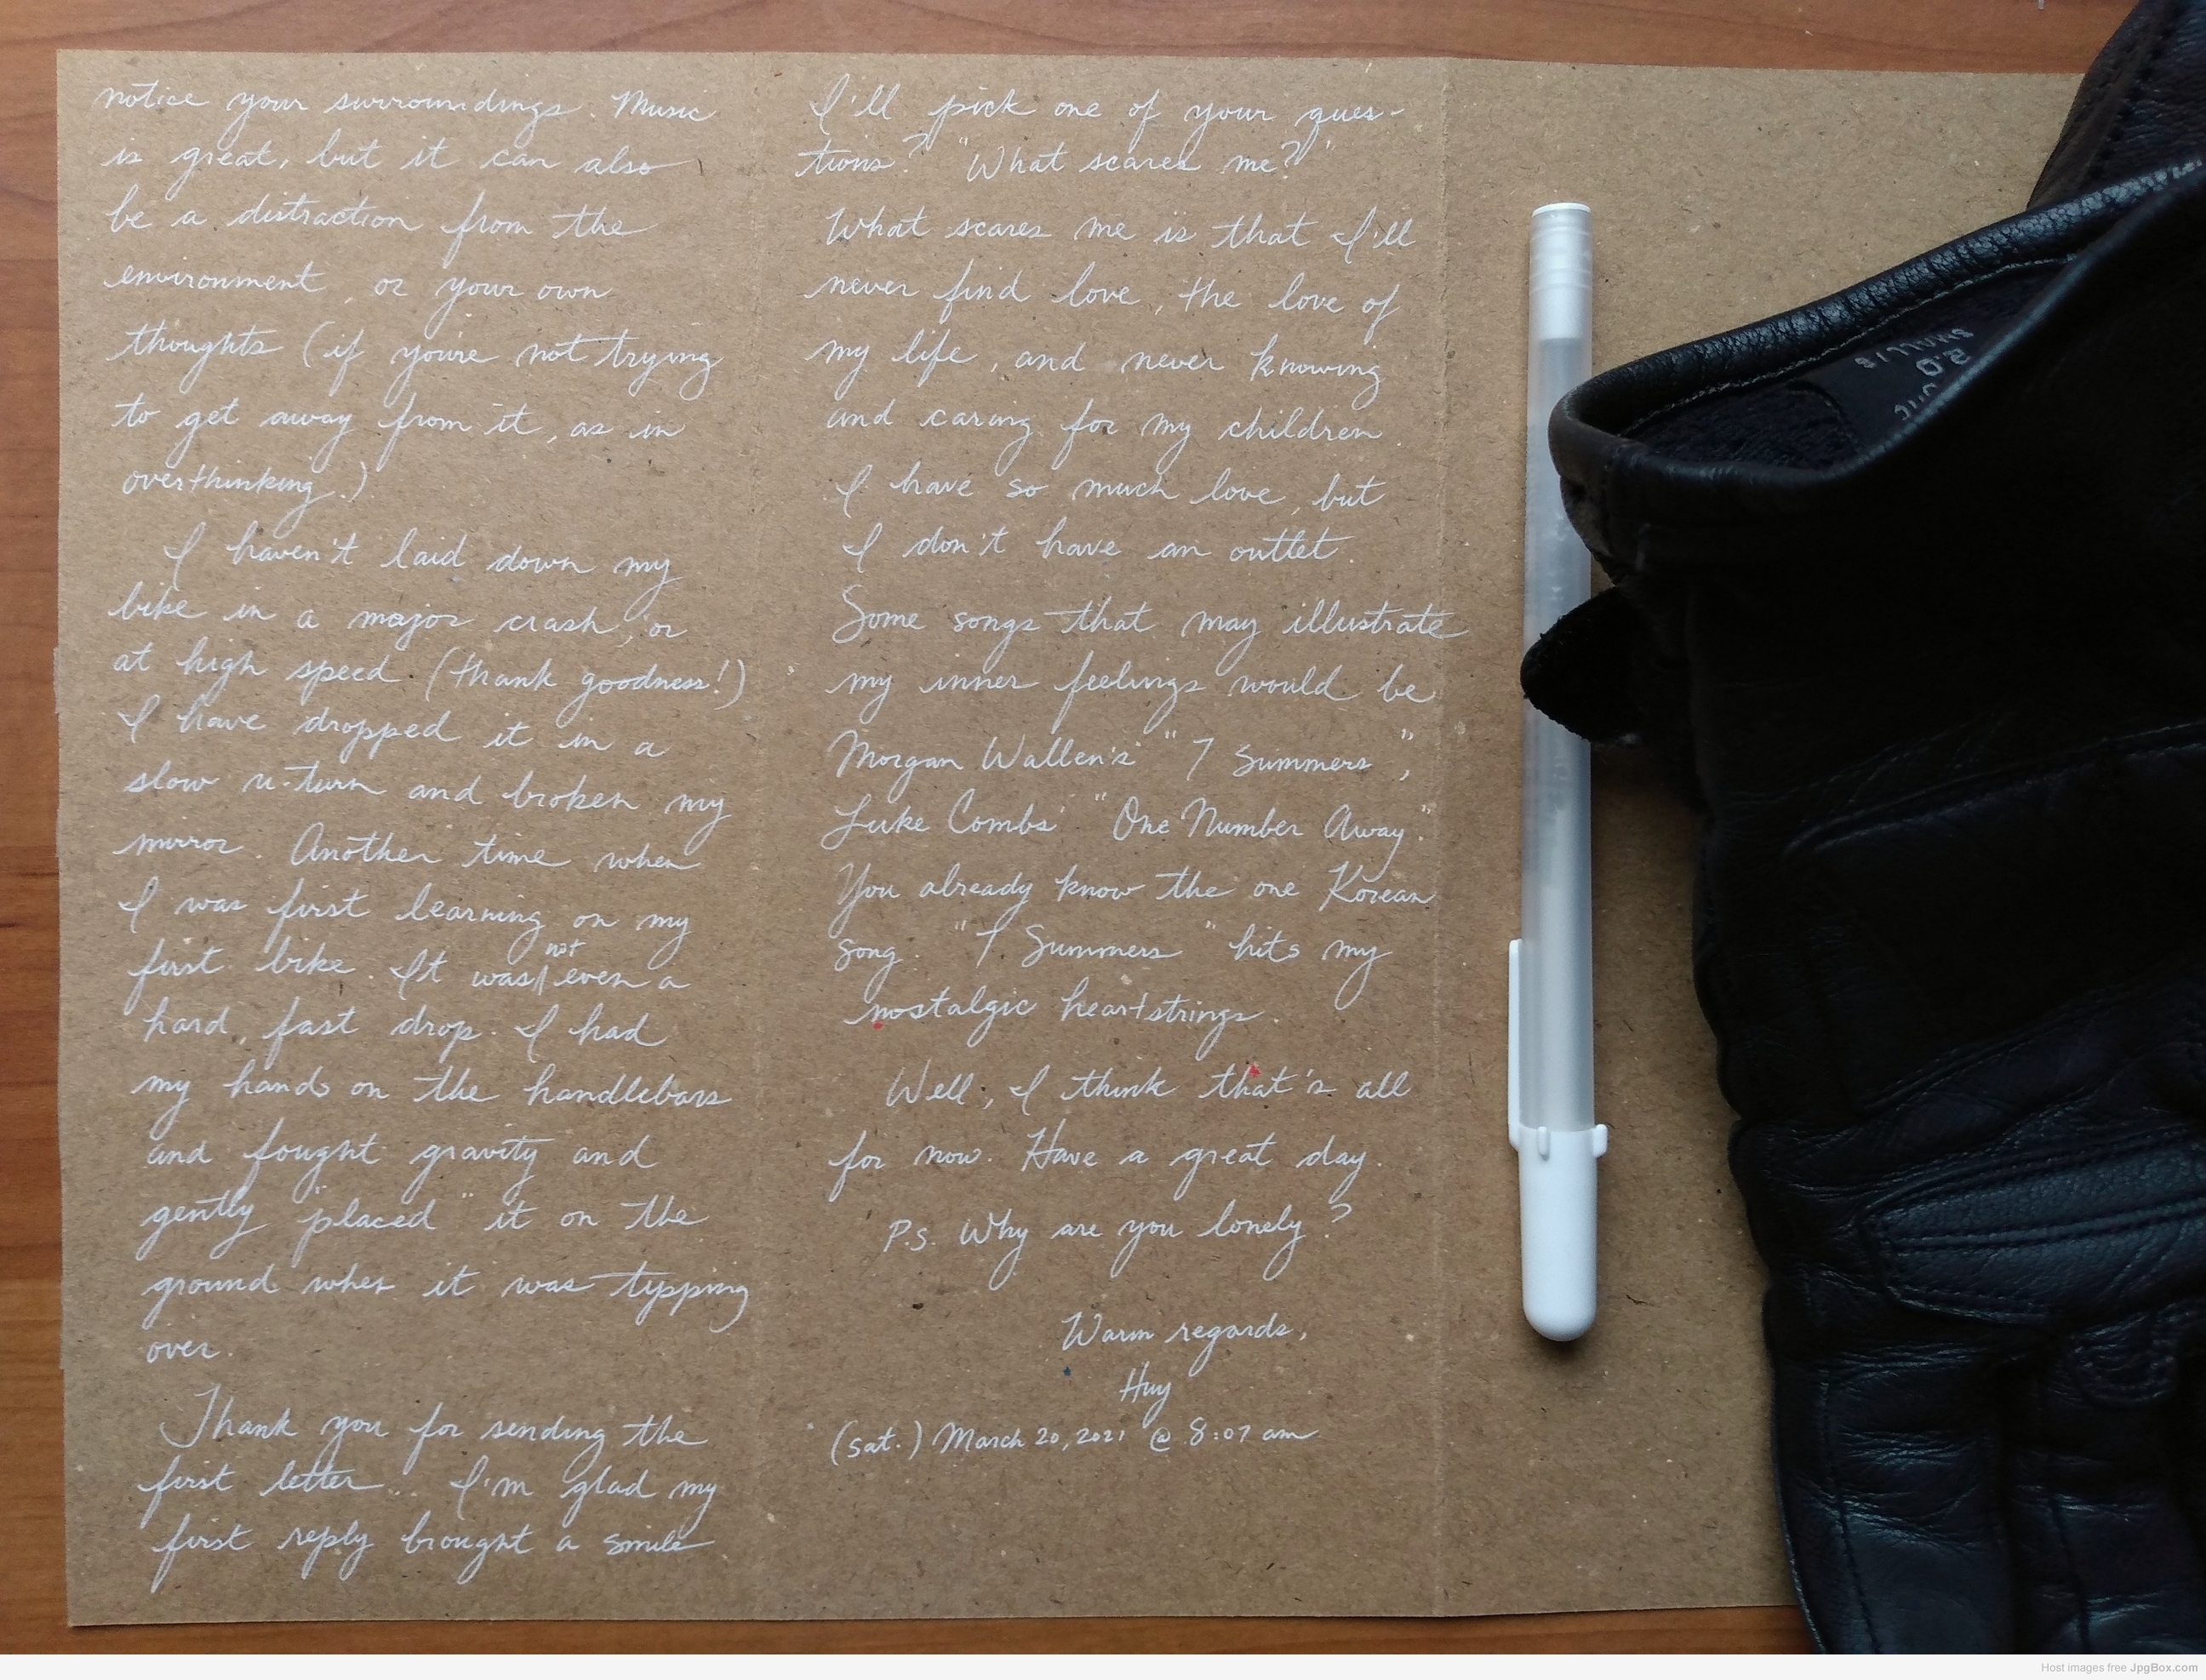 notice your surroundings. Music
is great, but it can also
be a distraction from the
environment, or your own
thoughts (if you're not trying
to get away from it, as in
overthinking.)
I haven't laid down my
bike in a major crash, or
at high speed (thank goodness!)
I have dropped it in a
slow u-turn and broken my
mirror. Another time when
I was first learning on my
first bike. It was not even a
hard, fast drop. I had
my hands on the handlebars
and fought gravity and
gently "placed" it on the
ground when it was typping
over.
Thank you for sending the
first letter. I'm glad my
first reply brought a smile
I'll pick one of your ques-
tions? "What scares me?"
What scares me is that I'll
never find love, the love of
my life, and never knowing
and caring for my children.
I have so much love, but
I don't have an outlet.
Some songs that may illustrate
my inner feelings would be
Morgan Wallen's "7 Summers",
Luke Combs' "One Number Away."
You already know the one Korean
song. "7 Summers" hits my
nostalgic heartstrings.
Well, I think that's all
for now. Have a great day.
P.S. Why are you lonely?
Warm regards,
Huy
(Sat.) March 20, 2021 @ 8:07 am
Host images free JpgBox.com